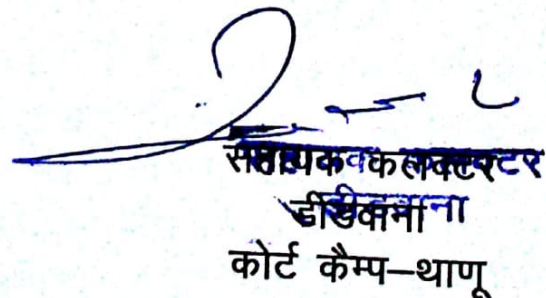 सहायक कलक्टर
डीडवाना
कोर्ट कैम्प–थाणू